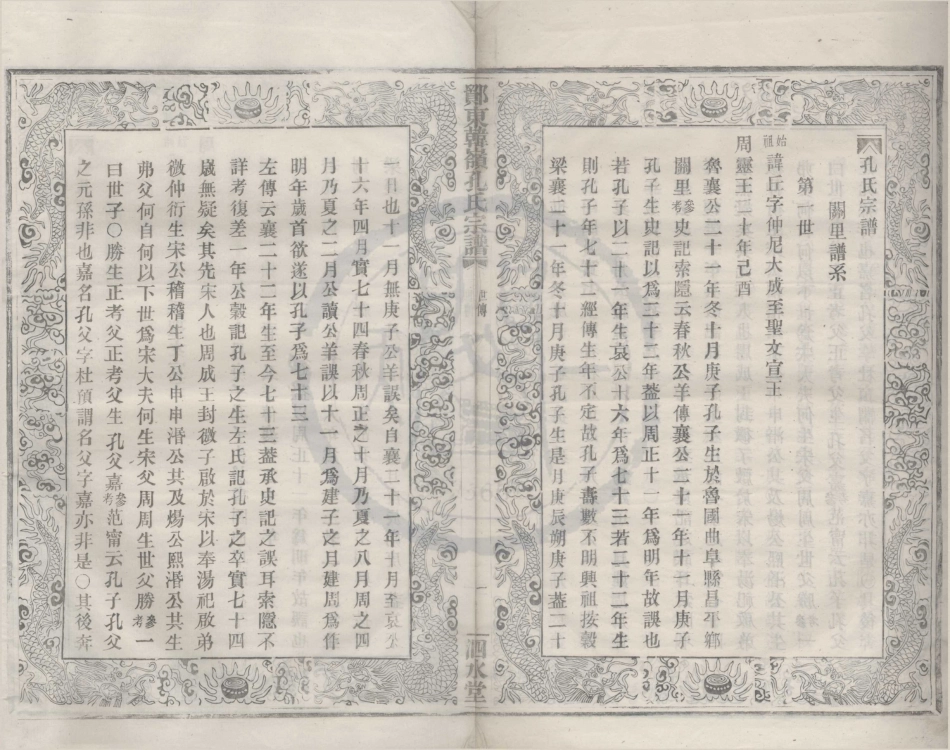 孔氏宗譜
闕里譜系
第一世
始祖諱丘字仲尼大成至聖文宣王
周靈王二十年己酉
魯襄公二十一年冬十月庚子孔子生於魯國曲阜縣昌平鄉
闕里參考史記索隱云春秋公羊傳襄公二十一年十一月庚子
孔子生史記以為二十二年蓋以周正十一年為明年故誤也
若孔子以二十一年生哀公十六年為七十三若二十二年生
則孔子年七十二經傳生年不定故孔子壽數不明興祖按穀
梁襄二十一年冬十月庚子孔子生是月庚辰朔庚子蓋二十
鄞東韓嶺孔氏宗譜
世傳
一
泗水堂
一日也十一月無庚子公羊誤矣自襄二十一年十月至哀公
十六年四月實七十四春秋周正之十月乃夏之八月周之四
月乃夏之二月公讀公羊誤以十一月為建子之月建周為作
明年歲首欲遂以孔子為七十三
左傳云襄二十二年生至今七十三蓋承史記之誤耳索隱不
詳考復差一年公穀記孔子之生左氏記孔子之卒實七十四
歲無疑矣其先宋人也周成王封微子啟於宋以奉湯祀啟弟
微仲衍生宋公稽稽生丁公申申生湣公共及煬公熙湣公共生
弗父何自何以下世為宋大夫何生宋父周周生世父勝參考一
曰世子〇勝生正考父正考父生孔父嘉參考范甯云孔子孔父
之元孫非也嘉名孔父字杜預謂名父字嘉亦非是〇其後奔